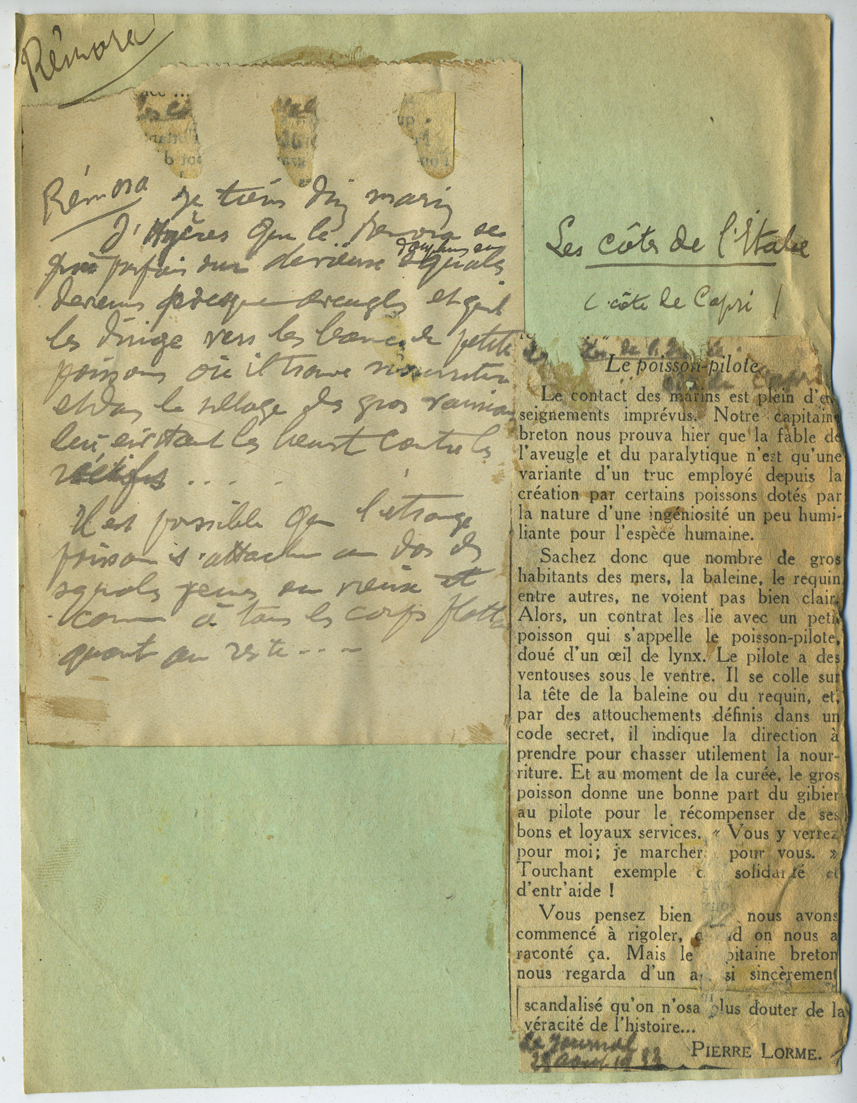 Rémora
Rémora je tiens d'un marin
d'Hyères que le Remora se
parfois sur derrière squals
devenus presque aveugles et qu'il
les dirige vers les bancs de petits
poissons où il trouve nourriture
et dans le sillage des gros
les
récifs . . . .
Il est possible que l'étrange
poisson s'attache au dos des
squals jeunes ou vieux et
comme à tous les corps
quant au reste . . . .
Les côtes de l'Italie
(côte de Capri)
Le poisson-pilote
Le contact des marins est plein d'en-
seignements imprévus. Notre capitaine
breton nous prouva hier que la fable de
l'aveugle et du paralytique n'est qu'une
variante d'un truc employé depuis la
création par certains poissons dotés par
la nature d'une ingéniosité un peu humi-
liante pour l'espèce humaine.
Sachez donc que nombre de gros
habitants des mers, la baleine, le requin
entre autres, ne voient pas bien clair.
Alors, un contrat les lie avec un petit
poisson qui s'appelle le poisson-pilote,
doué d'un œil de lynx. Le pilote a des
ventouses sous le ventre. Il se colle sur
la tête de la baleine ou du requin, et,
par des attouchements définis dans un
code secret, il indique la direction à
prendre pour chasser utilement la nour-
riture. Et au moment de la curée, le gros
poisson donne une bonne part du gibier
au pilote pour le récompenser de ses
bons et loyaux services. « Vous y verrez
pour moi; je marcher pour vous. »
Touchant exemple solidarité et
d'entr'aide !
Vous pensez bien nous avons
commencé à rigoler, on nous a
raconté ça. Mais le capitaine breton
nous regarda d'un si sincèrement
scandalisé qu'on n'osa plus douter de la
véracité de l'histoire...
Le Journal
PIERRE LORME.